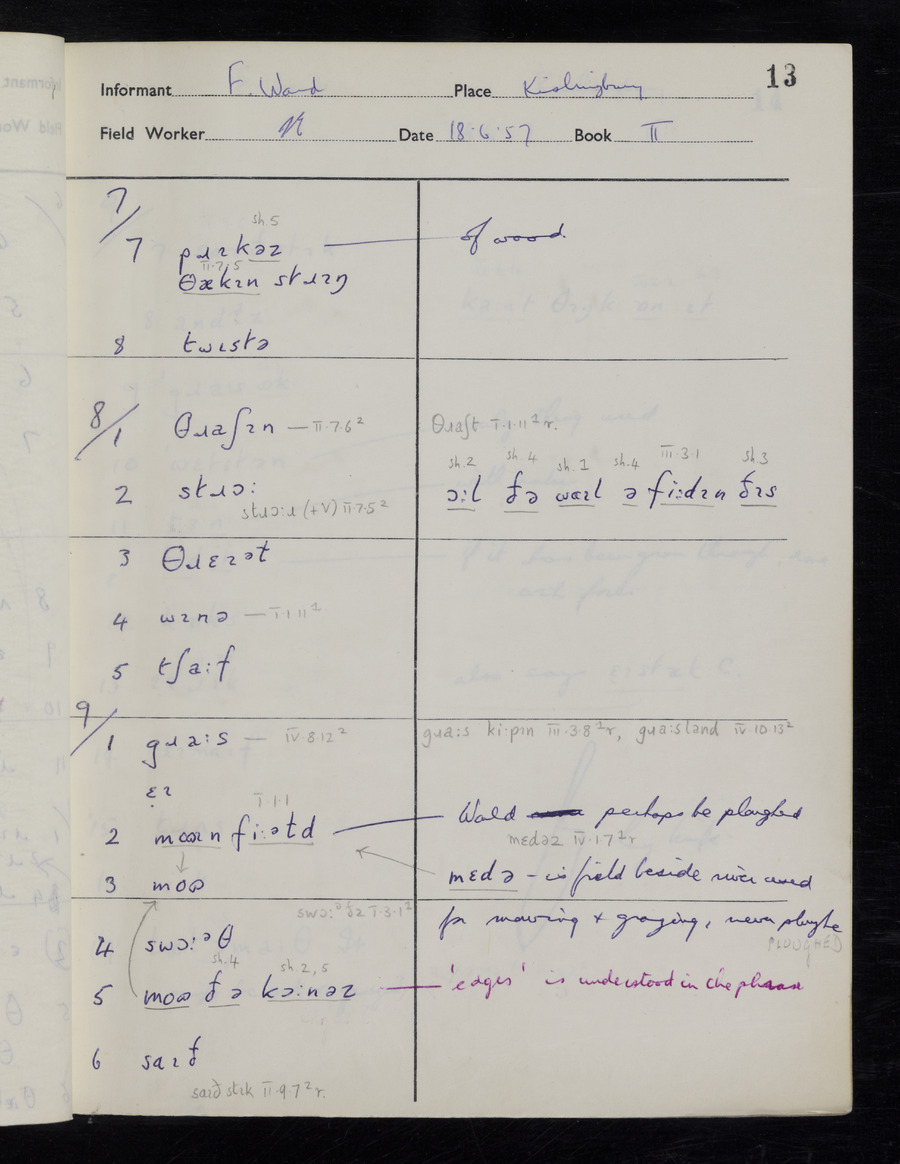 13
Informant F. Ward Place Kislingbury
Field Worker N Date 18·6·57 Book II
7/
sh.5
7 pɹɪkəz — of wood
II·7·5
θækɪn stɹɪŋ
8 twɪstə
8/
1 θɹaʃɪn — II·7·6² θɹaʃt I·1·11²r.
sh.2 sh.4 sh.1 sh.4 III·3·1 sh.3
2 stɹɔ: ɔ:l ðə waɪl ə fi:dɪn ðɪs
stɹɔ:ɹ (+V) II·7·5²
3 θɹɛɪət
4 wɪnə — I·1·11¹
5 tʃa:f
9/
1 gɹa:s — IV·8·12² gɹa:s ki·pɪn III·3·8²r, gɹa:sland IV·10·13²
ɛɪ
I·1·1
2 mɷɪn fi:ətd — Would perhaps be ploughed
mɛdəz IV·1·7²r
3 moɷ mɛdə – is field beside river used
for mowing + grazing, never ploughe
PLOUGHED
swɔ:ᵊðz I·3·1²
4 swɔ:ᵊθ
sh.4 sh.2,5
5 moɷ ðə kɔ:nəz — 'edges' is understood in the phrase
6 saɪð
saɪð stɪk II·9·7²r.